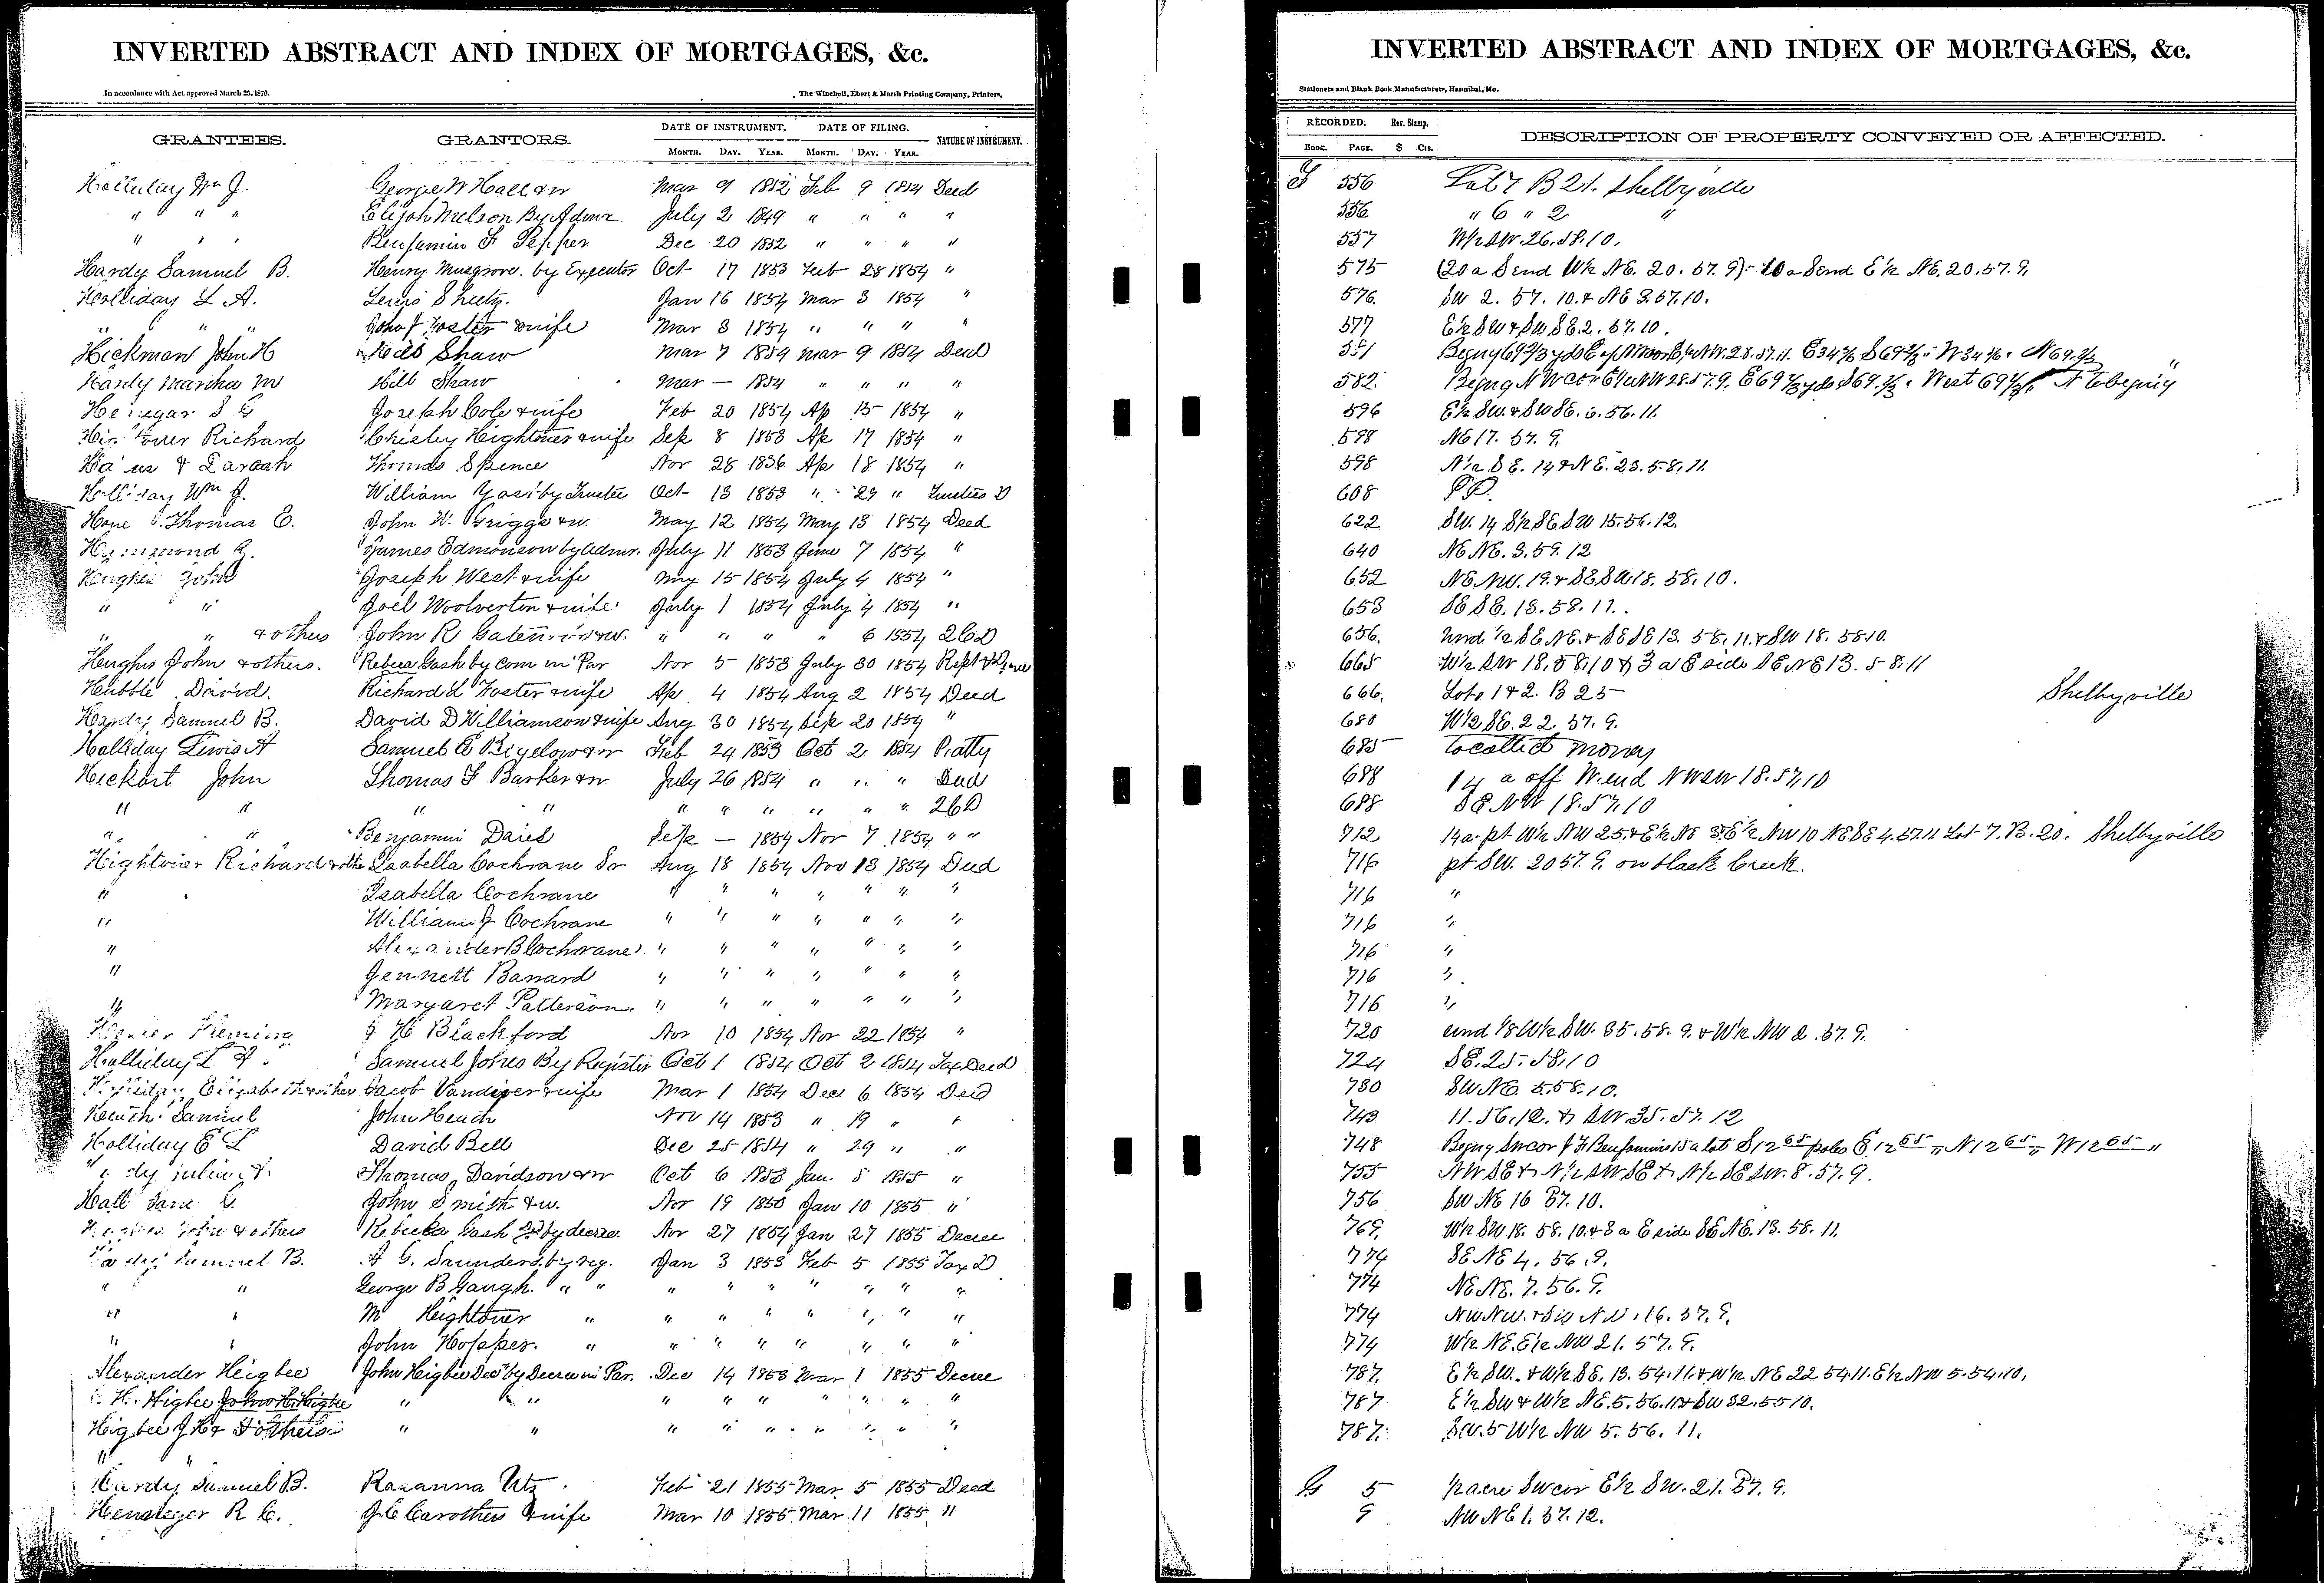 INVERTED ABSTRACT AND INDEX OF MORTGAGES, &c.
In accordance with Act approved March 25, 1870.
The Winchell, Ebert & Marsh Printing Company, Printers,
GRANTEES. GRANTORS. DATE OF INSTRUMENT. DATE OF FILING. NATURE OF INSTRUMENT.
MONTH. DAY. YEAR. MONTH. DAY. YEAR.
Holliday Wm J. George W Hall & w Mar 9 1852 Feb 9 1854 Deed
" " " Elijah Melson By Admr. July 2 1849 " " " "
" " " Benjamin F Pepper Dec 20 1852 " " " "
Hardy Samuel B. Henry Musgrove. by Executor Oct 17 1853 Feb 28 1854 "
Holliday L A. Lewis Sheetz. Jan 16 1854 Mar 3 1854 "
" " John J Foster & wife Mar 3 1854 " " " "
Hickman John H Shaw Mar 7 1854 Mar 9 1854 Deed
Hardy Martha M Shaw Mar — 1854 " " " "
Henegar S G Joseph Cole & wife Feb 20 1854 Ap 15 1854 "
Richard Chisley Hightower & wife Sep 8 1853 Ap 17 1854 "
& Darrah Thomas Spence Nov 28 1836 Ap 18 1854 "
Holliday Wm J. William by Trustee Oct 13 1853 " 29 " Trustees D
Thomas E. John W. Griggs & w. May 12 1854 May 13 1854 Deed
James Edmonson by Admr. July 11 1853 June 7 1854 "
Hughes John Joseph West & wife May 15 1854 July 4 1854 "
" " Joel Woolverton & wife July 1 1854 July 4 1854 "
" " & others John R & w. " " " " 6 1854 2 G D
Hughes John & others. Rebeca Gash by Com in Par Nov 5 1853 July 30 1854
Hubble David. Richard L Foster & wife Ap 4 1854 Aug 2 1854 Deed
Hardy Samuel B. David D Williamson & wife Aug 30 1854 Sep 20 1854 "
Holliday Lewis A Samuel E Bigelow & w Feb 24 1853 Oct 2 1854 P. atty
Heckart John Thomas F Barker & w July 26 1854 " " " Deed
" " " " " " " " " " 2 G D
" " Benjamin Sep — 1854 Nov 7 1854 " "
Hightower Richard & others Isabella Cochrane Sr Aug 18 1854 Nov 13 1854 Deed
" Isabella Cochrane " " " " " " "
" William J Cochrane " " " " " " "
" Alexander B Cochrane " " " " " " "
" Jennett Banard " " " " " " "
" Margaret Patterson " " " " " " "
Fleming Blackford Nov 10 1854 Nov 22 1854 "
Holliday L A. Samuel Johns By Register Oct 1 1854 Oct 2 1854 Tax Deed
Elizabeth & other Jacob Vandiver & wife Mar 1 1854 Dec 6 1854 Deed
Samuel John Heath Nov 14 1853 " 19 " "
Holliday E L David Bell Dec 25 1854 " 29 " "
Julia A. Thomas Davidson & w Oct 6 1853 Jan 5 1855 "
Hall Jane John Smith & w. Nov 19 1850 Jan 10 1855 "
Hughes John & others Rebecca Gash by decree. Nov 27 1854 Jan 27 1855 Decree
Hardy Samuel B. A G. Saunders. by reg. Jan 3 1853 Feb 5 1855 Tax D
" " George B Gaugh. " " " " " " " " "
" " M Hightower " " " " " " " "
" " John Hopper. " " " " " " " "
Alexander Higbee John Higbee Decd by Decree in Par. Dec 14 1853 Mar 1 1855 Decree
H. Higbee John H. Higbee " " " " " " " " "
Higbee J H & others " " " " " " " " "
" "
Hardy Samuel B. Roxanna Utz Feb 21 1855 Mar 5 1855 Deed
Hensleyer R C. J C Carothers & wife Mar 10 1855 Mar 11 1855 "
INVERTED ABSTRACT AND INDEX OF MORTGAGES, &c.
Stationers and Blank Book Manufacturers, Hannibal, Mo.
RECORDED. Rev. Stamp. DESCRIPTION OF PROPERTY CONVEYED OR AFFECTED.
BOOK. PAGE. $ Cts.
F 556 Lot 7 B 21. Shelbyville
556 " 6 " 2 "
557 W½ SW. 26. 58. 10.
575 (20 a S end W½ NE. 20. 57. 9) 10 a S end E½ NE. 20. 57. 9.
576. SW 2. 57. 10. & NE 3. 57. 10.
577 E½ SW & SW SE. 2. 57. 10.
581
582.
596 E½ SW. & SW SE. 6. 56. 11.
598 NE 17. 57. 9.
598 N½ SE. 14 & NE. 23. 58. 11.
608 P P.
622 SW. 14 S½ SE SW 15. 56. 12.
640 NE NE. 3. 59. 12
652 NE NW. 19. & SE SW 18. 58. 10.
653 SE SE. 13. 58. 11.
656. und ½ SE NE. & SE SE 13. 58. 11. & SW 18. 58 10.
665 W½ SW 18. 58. 10 & 3 a E side SE NE 13. 58. 11
666. Lots 1 & 2. B 25 Shelbyville
680 W½ SE. 22. 57. 9.
685 to collect money
688 14 a off W. end NW SW 18. 57. 10
688 SE NW 18. 57. 10
712 14 a. pt W½ NW 25 & E½ NE 3. E½ NW 10 NE SE 4. 57. 11 Lot 7. B. 20. Shelbyville
716 pt SW. 20 57. 9. on black Creek.
716 "
716 "
716 "
716 "
716 "
720 und ⅛ W½ SW. 35. 58. 9. & W½ NW 2. 57. 9.
724 SE. 25. 58. 10
730 SW NE. 5. 58. 10.
743 11. 56. 12. & SW 35. 57. 12
748 Begng SW cor J F Benjamins 15 a lot S 12 65 poles E 12 65 " N 12 65 " W 12 65 "
755 NW SE & N½ SW SE & N½ SE SW. 8. 57. 9.
756 SW NE 16 57. 10.
769. W½ SW 18. 58. 10. & 3 a E side SE NE. 13. 58. 11.
774 SE NE 4. 56. 9.
774 NE NE. 7. 56. 9.
774 NW NW. & 16. 57. 9.
774 W½ NE. E½ NW 21. 57. 9.
787. E½ SW. & W½ SE. 13. 54. 11. & W½ NE 22 54. 11. E½ NW 5. 54. 10.
787 E½ SW & W½ NE. 5. 56. 11 & SW 32. 55 10.
787. SW. 5 W½ NW 5. 56. 11.
G 5 ½ acre SW cor E½ SW. 21. 57. 9.
9 NW NE 1. 57. 12.